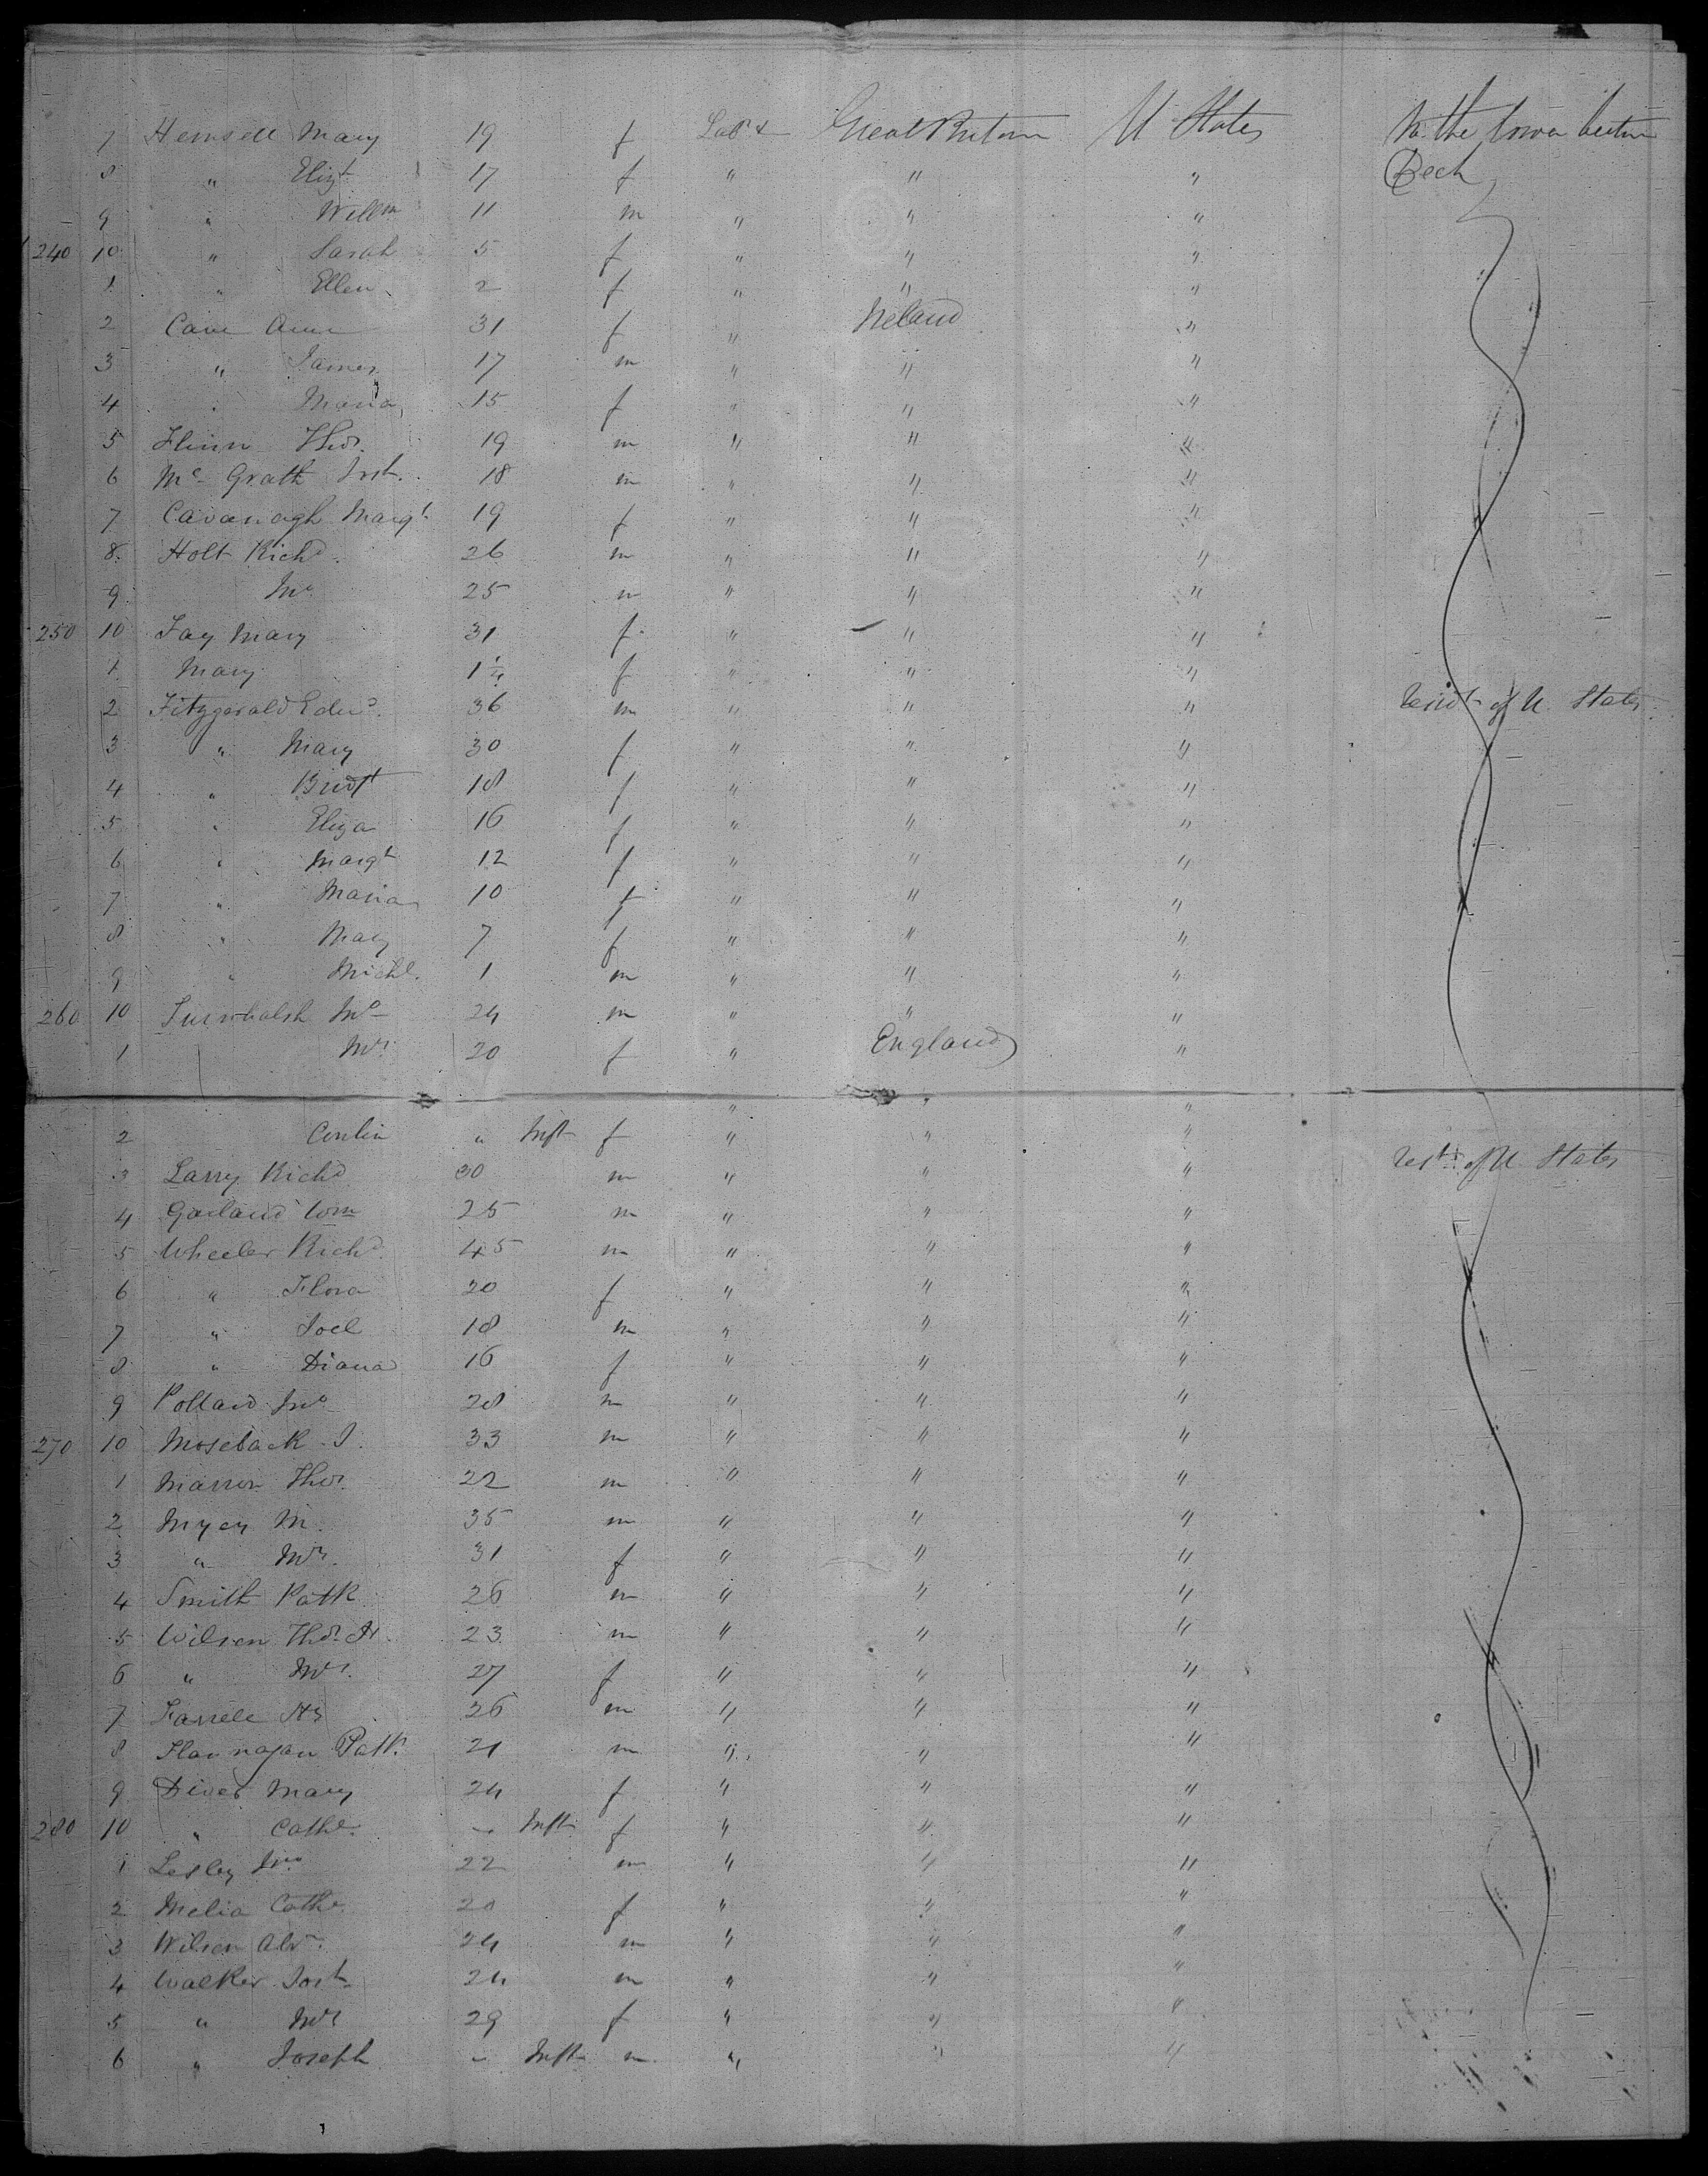 7 Hemsell Mary 19 f Great Britain U States In the lower between
8 " Eliz.t 17 f " " " Deck
9 " Will.m 11 m " " "
240 10 " Sarah 5 f " " "
1 " Ellen 2 f " " "
2 Cane Anne 31 f " Ireland "
3 " James 17 m " " "
4 " Maria 15 f " " "
5 Flinn Thos. 19 m " " "
6 Mc Grath 18 m " " "
7 Cavanagh Margt 19 f " " "
8 Holt Richd. 26 m " " "
9 Jno. 25 m " " "
250 10 Fay Mary 31 f " " "
1 Mary 1¼ f " " "
2 Fitzgerald Edwd. 36 m " " " of U. States
3 " Mary 30 f " " "
4 " Bridt 18 f " " "
5 " Eliza 16 f " " "
6 " Margt 12 f " " "
7 " Maria 10 f " " "
8 " Mary 7 f " " "
9 " Michl. 1 m " " "
260 10 Jno 24 m " " "
1 Mrs 20 f " England "
" " "
2 " Inft f " " "
3 Larry Richd 30 m " " " of U States
4 Garland Wm 25 m " " "
5 Wheeler Richd. 45 m " " "
6 " Flora 20 f " " "
7 " Joel 18 m " " "
8 " Diana 16 f " " "
9 Pollard Jno 28 m " " "
270 10 Moseback J. 33 m " " "
1 Thos. 22 m " " "
2 Myer M. 35 m " " "
3 " Mrs. 31 f " " "
4 Smith Patk 26 m " " "
5 Wilson Thos. 23 m " " "
6 " Mrs. 27 f " " "
7 26 m " " "
8 Flannagan Patk. 21 m " " "
9 Diver Mary 24 f " " "
280 10 " Cathe. " Inft f " " "
1 Lesley Jno 22 m " " "
2 Melia Cathe. 20 f " " "
3 Wilson 24 m " " "
4 Walker 24 m " " "
5 " Mrs 29 f " " "
6 " Joseph " Inft m " " "